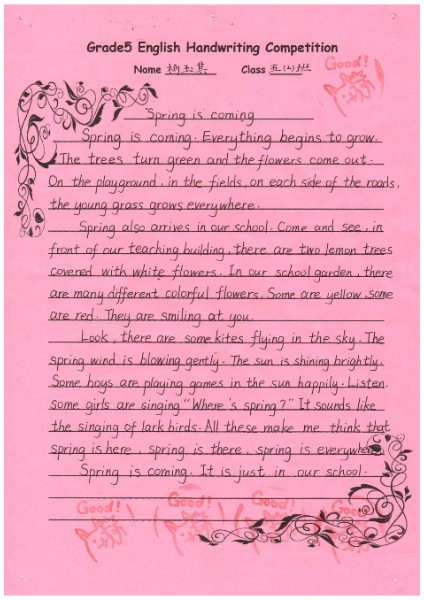 Grade5 English Handwriting Competition
Name 杨玉其 Class 五(2)班
Good!
Spring is coming
Spring is coming. Everything begins to grow.
The trees turn green and the flowers come out.
On the playground, in the fields, on each side of the roads,
the young grass grows everywhere.
Spring also arrives in our school. Come and see, in
front of our teaching building, there are two lemon trees
covered with white flowers. In our school garden, there
are many different colorful flowers. Some are yellow, some
are red. They are smiling at you.
Look, there are some kites flying in the sky. The
spring wind is blowing gently. The sun is shining brightly.
Some boys are playing games in the sun happily. Listen.
some girls are singing "Where's spring?" It sounds like
the singing of lark birds. All these make me think that
spring is here, spring is there, spring is everywhere.
Spring is coming. It is just in our school.
Good! Good! Good! Good!